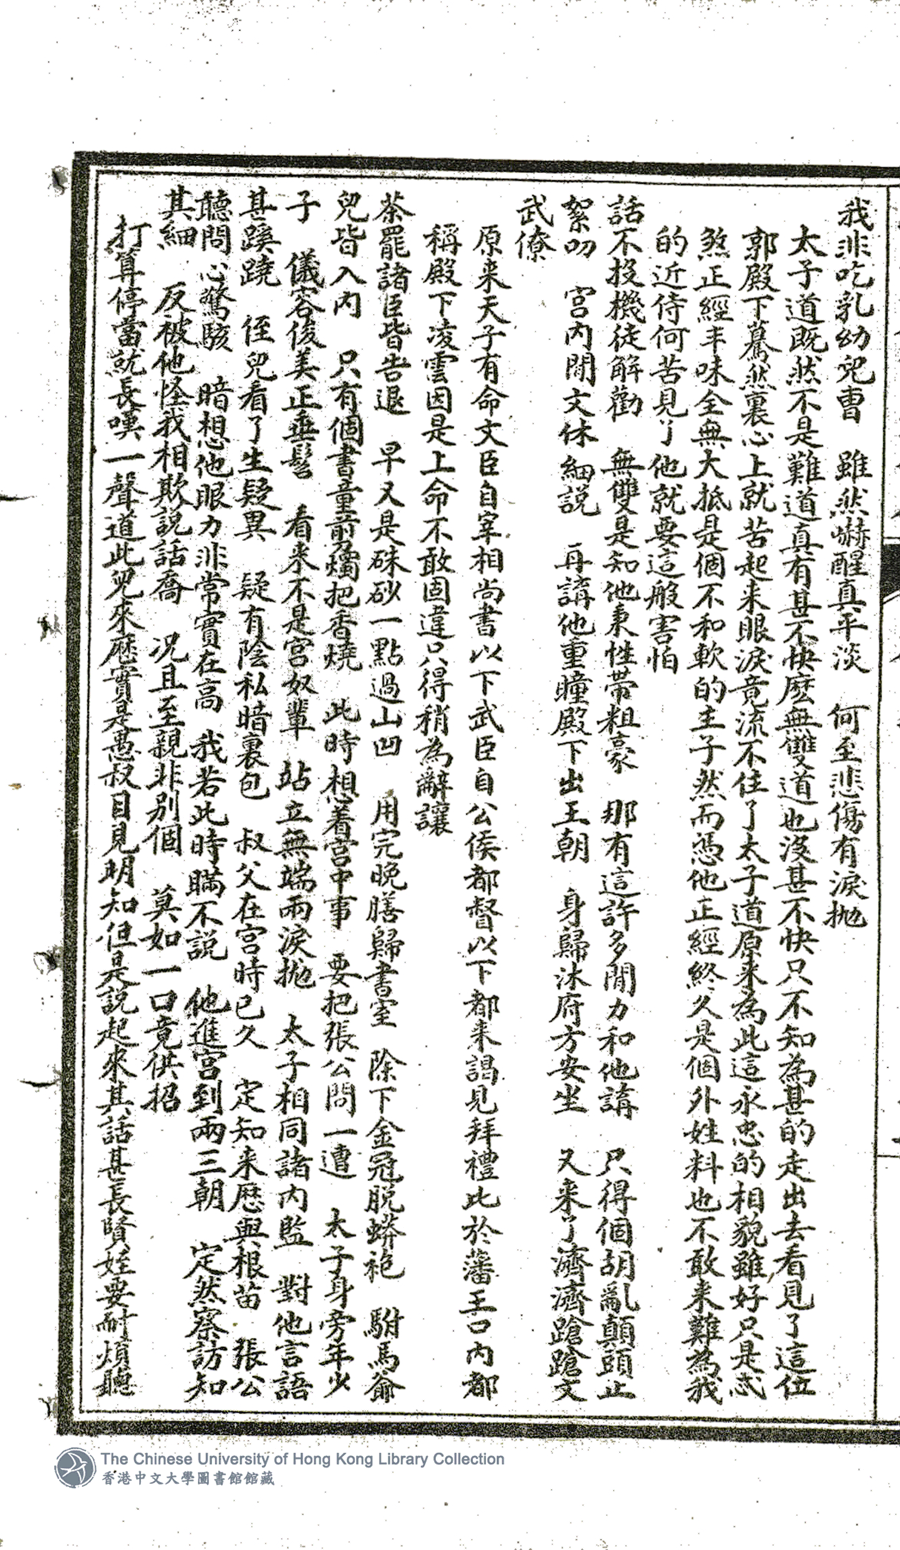 我非吃乳幼兒曹　雖然嚇醒真平淡　何至悲傷有淚拋
太子道既然不是難道真有甚不快麼無雙道也沒甚不快只不知為甚的走出去看見了這位
郭殿下驀然裏心上就苦起來眼淚竟流不住了太子道原來為此這永忠的相貌雖好只是忒
煞正經丰味全無大抵是個不和軟的主子然而憑他正經終久是個外姓料也不敢來難為我
的近侍何苦見了他就要這般害怕
話不投機徒解勸　無雙是知他秉性帶粗豪　那有這許多閒力和他講　只得個胡亂顛頭止
絮叨　宮內閒文休細說　再講他重瞳殿下出王朝　身歸沐府方安坐　又来了濟濟蹌蹌文
武僚
原来天子有命文臣自宰相尚書以下武臣自公侯都督以下都来謁見拜禮此於藩王口內都
稱殿下凌雲因是上命不敢固違只得稍為辭讓
茶罷諸臣皆告退　早又是硃砂一點過山凹　用完晚膳歸書室　除下金冠脫蟒袍　駙馬爺
兒皆入內　只有個書童前燭把香燒　此時想着宮中事　要把張公問一遭　太子身旁年少
子　儀容俊美正垂髫　看來不是宮奴輩　站立無端兩淚拋　太子相同諸內監　對他言語
甚蹊蹺　侄兒看了生疑異　疑有陰私暗裏包　叔父在宮時已久　定知来歷與根苗　張公
聽問心驚駭　暗想他眼力非常實在高　我若此時瞞不說　他進宮到兩三朝　定然察訪知
其細　反被他怪我相欺說話喬　況且至親非別個　莫如一口竟供招
打算停當就長嘆一聲道此兒來歷實是愚叔目見明知但是說起來其話甚長賢姪要耐煩聽
The Chinese University of Hong Kong Library Collection
香港中文大學圖書館館藏